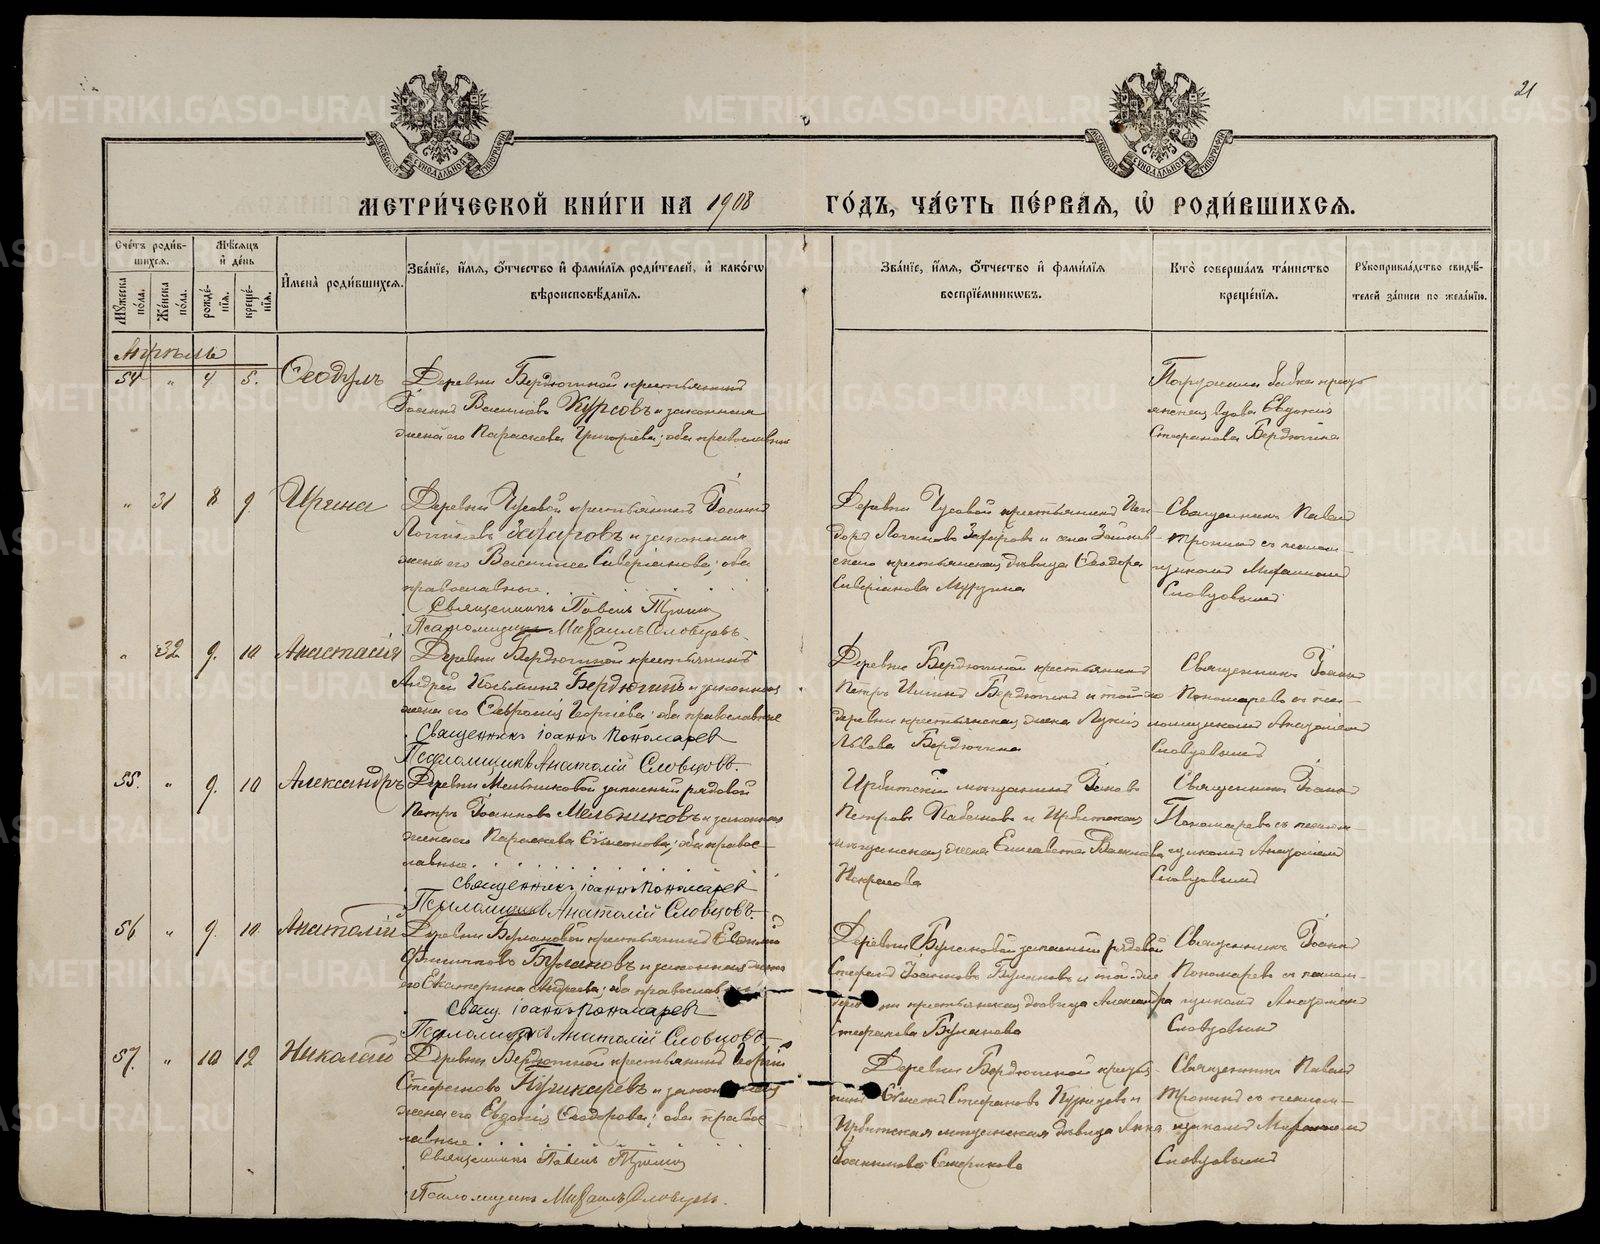 METRIKI.GASO-URAL.RU
21
МЕТРИ́ЧЕСКОЙ КНИ́ГИ НА 1908 ГО́ДЪ, ЧА́СТЬ ПЕ́РВАЯ, Ѡ РОДИ́ВШИХСЯ.
Сче́тъ роди́вшихся.
Мꙋ́жеска по́ла.
Же́нска по́ла.
Мѣ́сяцъ и҆ де́нь
рожде́нїѧ.
креще́нїѧ.
И҆мена̀ роди́вшихсѧ.
Зва́нїе, и҆́мѧ, ѻ҆́тчество и҆ фами́лїѧ роди́телей, и҆ како́гѡ
вѣроисповѣ́данїѧ.
Зва́нїе, и҆́мѧ, ѻ҆́тчество и҆ фами́лїѧ
воспрїе́мникѡвъ.
Кто̀ соверша́лъ та́инство
креще́нїѧ.
Рꙋкоприкла́дство свидѣ́-
телей за́писи по жела́нїю.
Апрѣль
54 " 4 5. Ѳеодулъ
Деревни Бердюгиной крестьянинъ
Іоаннъ Васильевъ Курсовъ и законная
жена его Параскева Григорьева; оба православные
Погружала бабка кресть
янская вдова Евдокія
Стефанова Бердюгина
" 31 8 9 Ирина
Деревни Чусовой крестьянинъ Іоаннъ
Логиновъ Зафаровъ и законная
жена его Василиса Северіанова; оба
православные.
Священникъ Павелъ
Псаломщикъ Михаилъ Словцовъ.
Деревни Чусовой крестьянинъ
Логиновъ Зафаровъ и села
крестьянская дѣвица Ѳеодора
Северіанова Мурзина
Священникъ Павелъ
съ псалом-
щикомъ Михаиломъ
Словцовымъ
" 32 9. 10 Анастасія
Деревни Бердюгиной крестьянинъ
Андрей Космінъ Бердюгинъ и законная
жена его Евфросинія Георгіева; оба православные
Священникъ Іоаннъ Пономаревъ
Псаломщикъ Анатолій Словцовъ.
Деревни Бердюгиной крестьянинъ
Петръ Бердюгинъ и той-же
деревни крестьянская жена Лукія
Львова Бердюгина
Священникъ Іоаннъ
Пономаревъ съ псал-
омщикомъ Анатоліемъ
Словцовымъ
55. " 9. 10 Александръ
Деревни Мельниковой запасный рядовой
Петръ Іоанновъ Мельниковъ и законная
жена его Параскева Симеонова; оба правос-
лавные.
Священникъ Іоаннъ Пономаревъ
Псаломщикъ Анатолій Словцовъ.
Ирбитскій мѣщанинъ Іаковъ
Петровъ Кабаковъ и Ирбитская
мѣщанская жена Елисавета
Некрасова
Священникъ Іоаннъ
Пономаревъ съ псалом-
щикомъ Анатоліемъ
Словцовымъ
56 " 9. 10 Анатолій
Деревни Булановой крестьянинъ Евѳимій
Филипповъ Булановъ и законная жена
его Екатерина Андреева; оба православные
Свящ. Іоаннъ Пономаревъ
Псаломщикъ Анатолій Словцовъ
Деревни Булановой запасный рядовой
Стефанъ Іоанновъ Булановъ и той-же
деревни крестьянская дѣвица Александра
Стефанова Буланова
Священникъ Іоаннъ
Пономаревъ съ псалом-
щикомъ Анатоліемъ
Словцовымъ
57. " 10 12 Николай
Деревни Бердюгиной крестьянинъ Георгій
Стефановъ и законная
жена его Евдокія Ѳеодорова; оба правос-
лавные.
Священникъ Павелъ
Псаломщикъ Михаилъ Словцовъ.
Деревни Бердюгиной кресть-
янинъ Симеонъ Стефановъ и
Ирбитская мѣщанская дѣвица Анна
Священникъ Павелъ
съ псалом-
щикомъ Михаиломъ
Словцовымъ